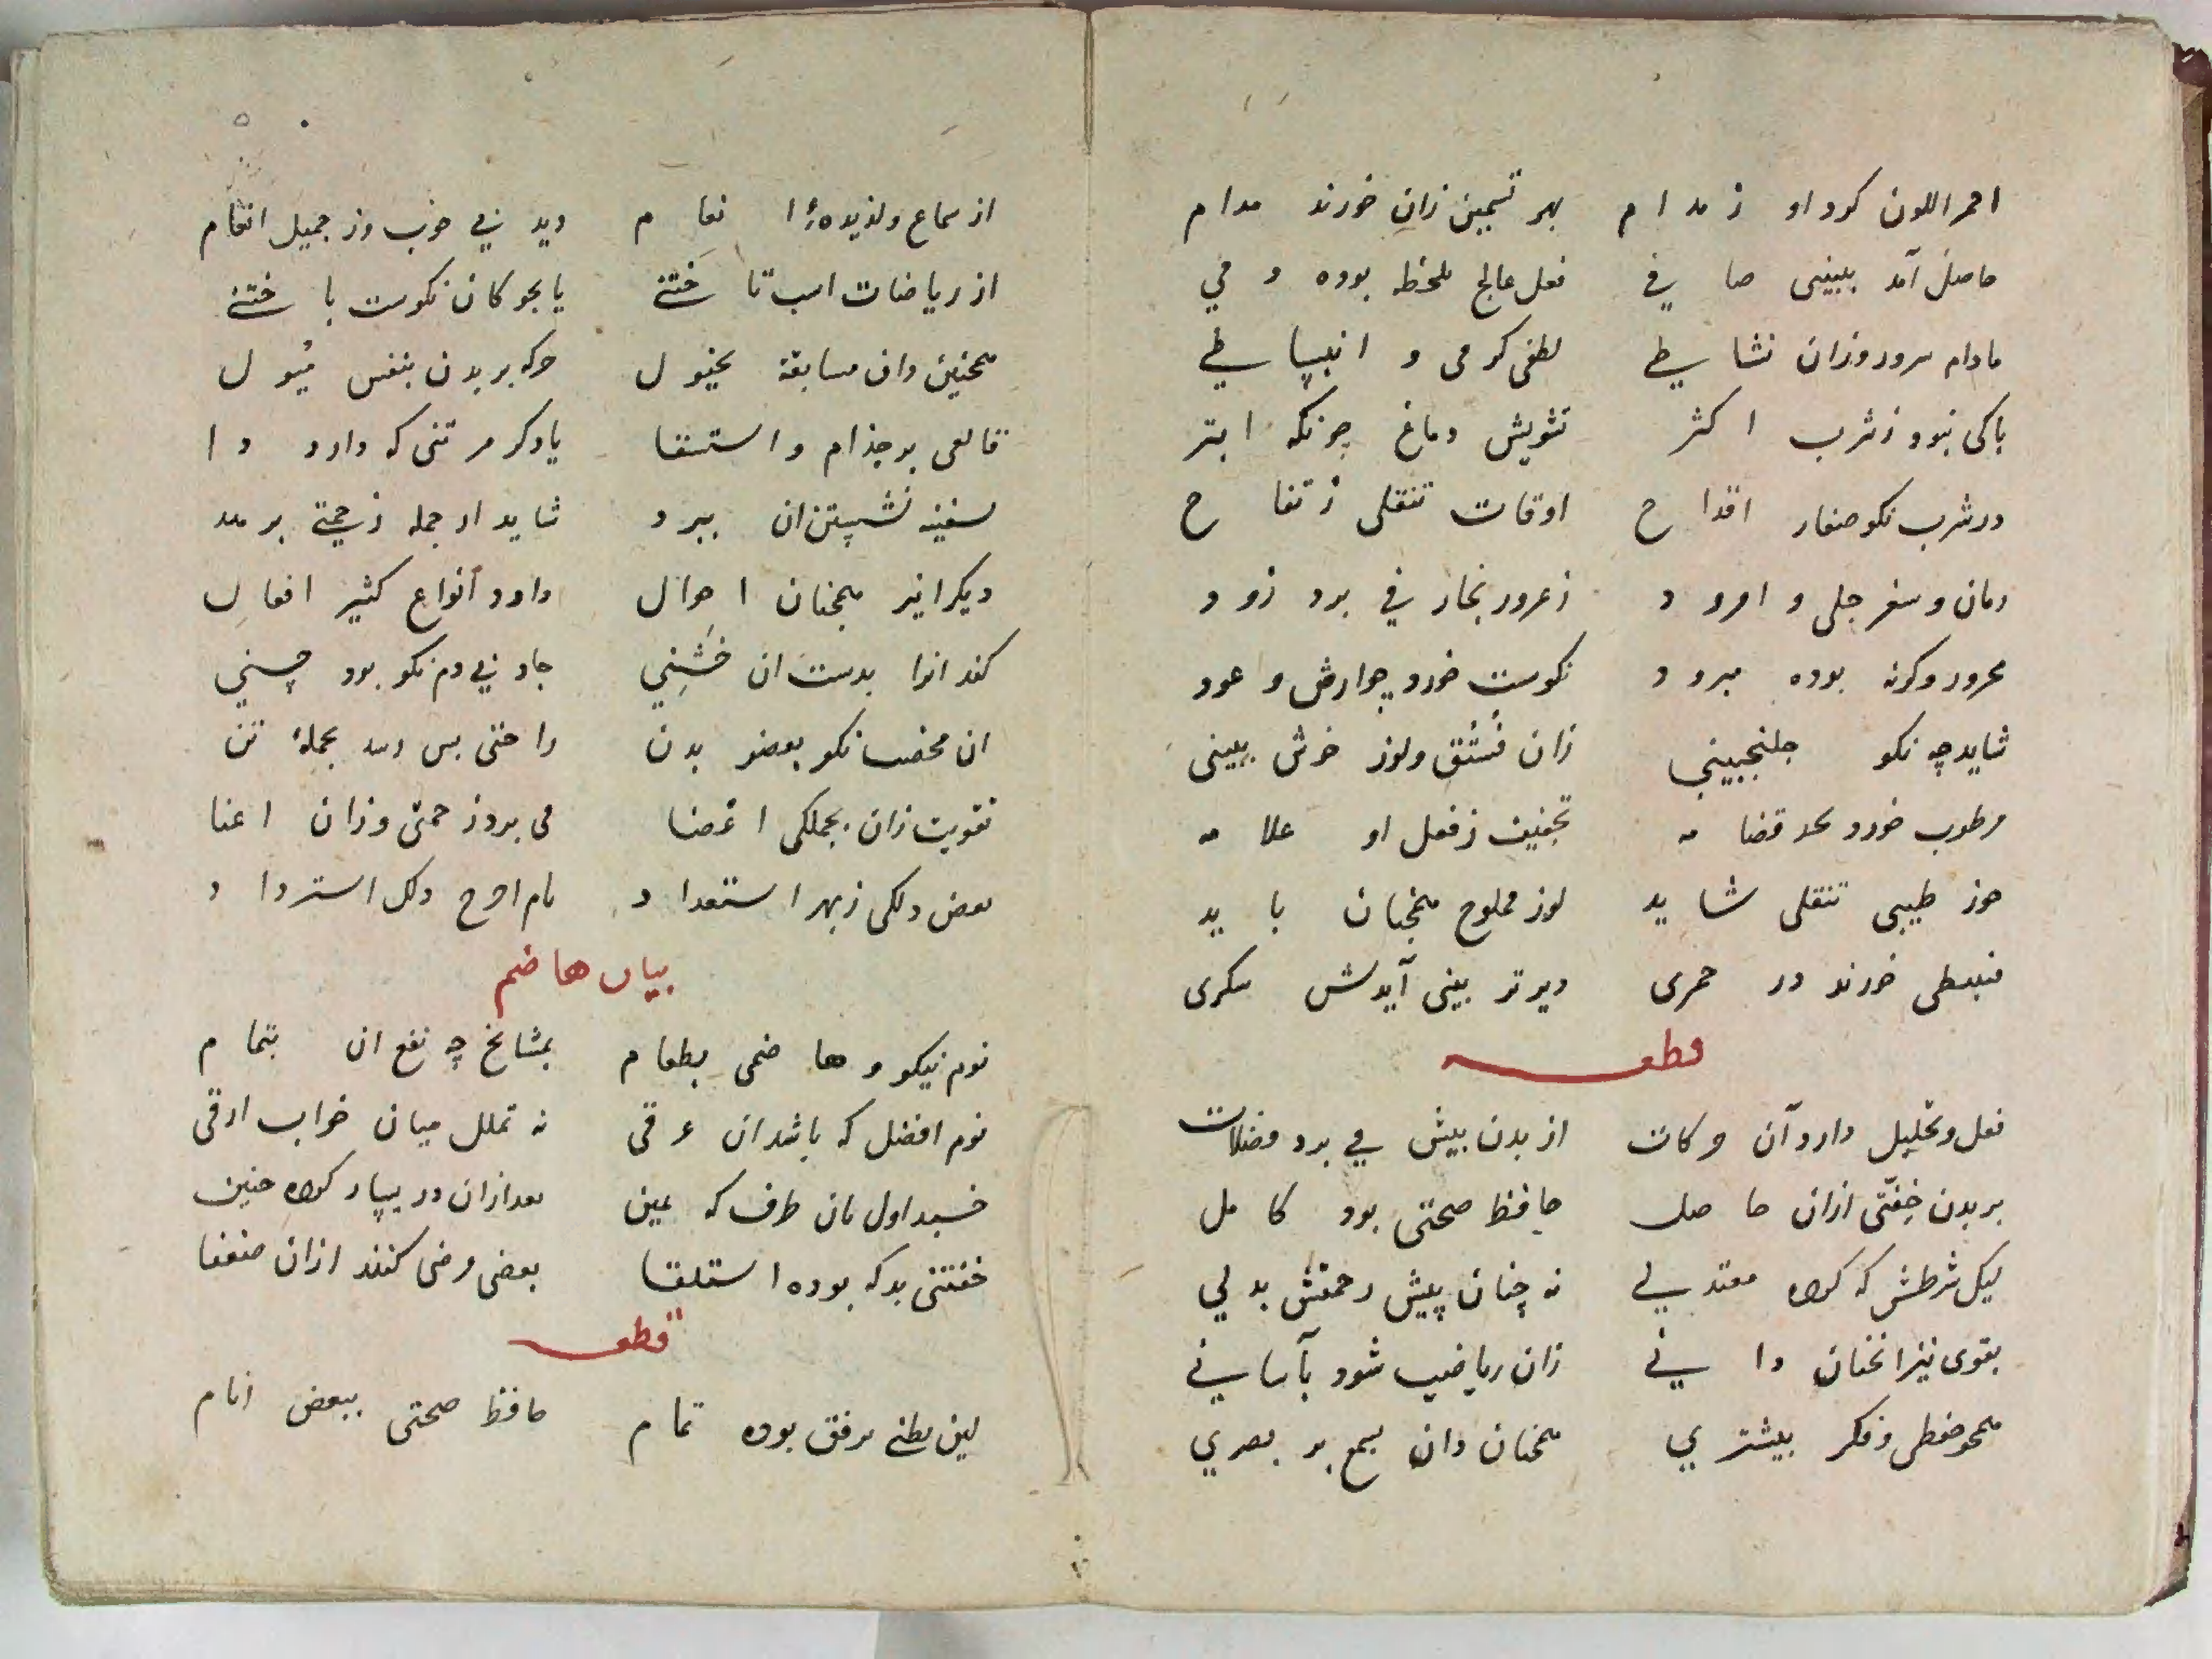 احمر اللون کرد او ز مدام بهر تسمین زان خورند مدام
حاصل آمد ببینی صافی فعل عالج ملحظ بوده وفی
مادام سرور وزان نشاطی لطفی کرمی و انبساطی
باکی نبود ز شرب اکثر تشویش دماغ چونکه ابتر
در شرب نکو صغار اقداح اوقات تنقلی ز تفاح
رمان و سفرجلی و امرود زعرور بخار فی برد زود
محرور وگرنه بوده مبرود نکوست خورد جوارش و عود
شاید چه نکو جلنجبینی زان فستق ولوز خوش ببینی
مرطوب خورد قضامه تجفیف ز فعل او علامه
جوز طیبی تنقلی شاید لوز مملوح همچنان باید
خورند در خمری دیرتر بینی آیدش سکری
قطعه
فعل و تحلیل دارد آن حرکات از بدن بیش می برد فضلات
بر بدن خفتی ازان حاصل حافظ صحتی بود کامل
لیک شرطش که معتدلی نه چنان بیش زحمتش بدلی
بقوی نیز انچنان دانی زان ریاضیب شود بآسانی
همچو حفظی و فکر بیشتری همچنان دان بسمع بر بصری
از سماع ولذیذه انغام دید نی خوب وز جمیل انغام
از ریاضات اسب تاختنی یا بچوکان نکوست باختنی
همچنین دان مسابقه بخیول حرکه بر بدن بنفس میول
قالعی بر جذام و استسقا یاد کر مر تنی که دارد دا
سفینه نشستن ان ببرد شاید از جمله زحمتی برهد
دیکرانیز همچنان احوال دارد انواع کثیر افعال
کند انرا بدست ان خشنی جاذبی دم نکو بود حسنی
ان محضب نکو بعضو بدن راحتی بس رسد بجملهٔ تن
تقویت زان بجملکی اعضا می برد زحمتی وزان اعنا
بعض دلکی ز بهر استعداد نام دلک استرداد
بیان هاضم
نوم نیکو و هاضمی بطعام بمشایخ چه نفع ان بتمام
نوم افضل که باشد ان غرقی نه تململ میان خواب ارقی
خسبد اول بان طرف که یمین بعد ازان در یسار حنین
خفتنی بد که بوده استلقا بعضی مرضی کنند ازان ضعفا
قطعه
لین بطنی برفق بوده تمام حافظ صحتی ببعض انام